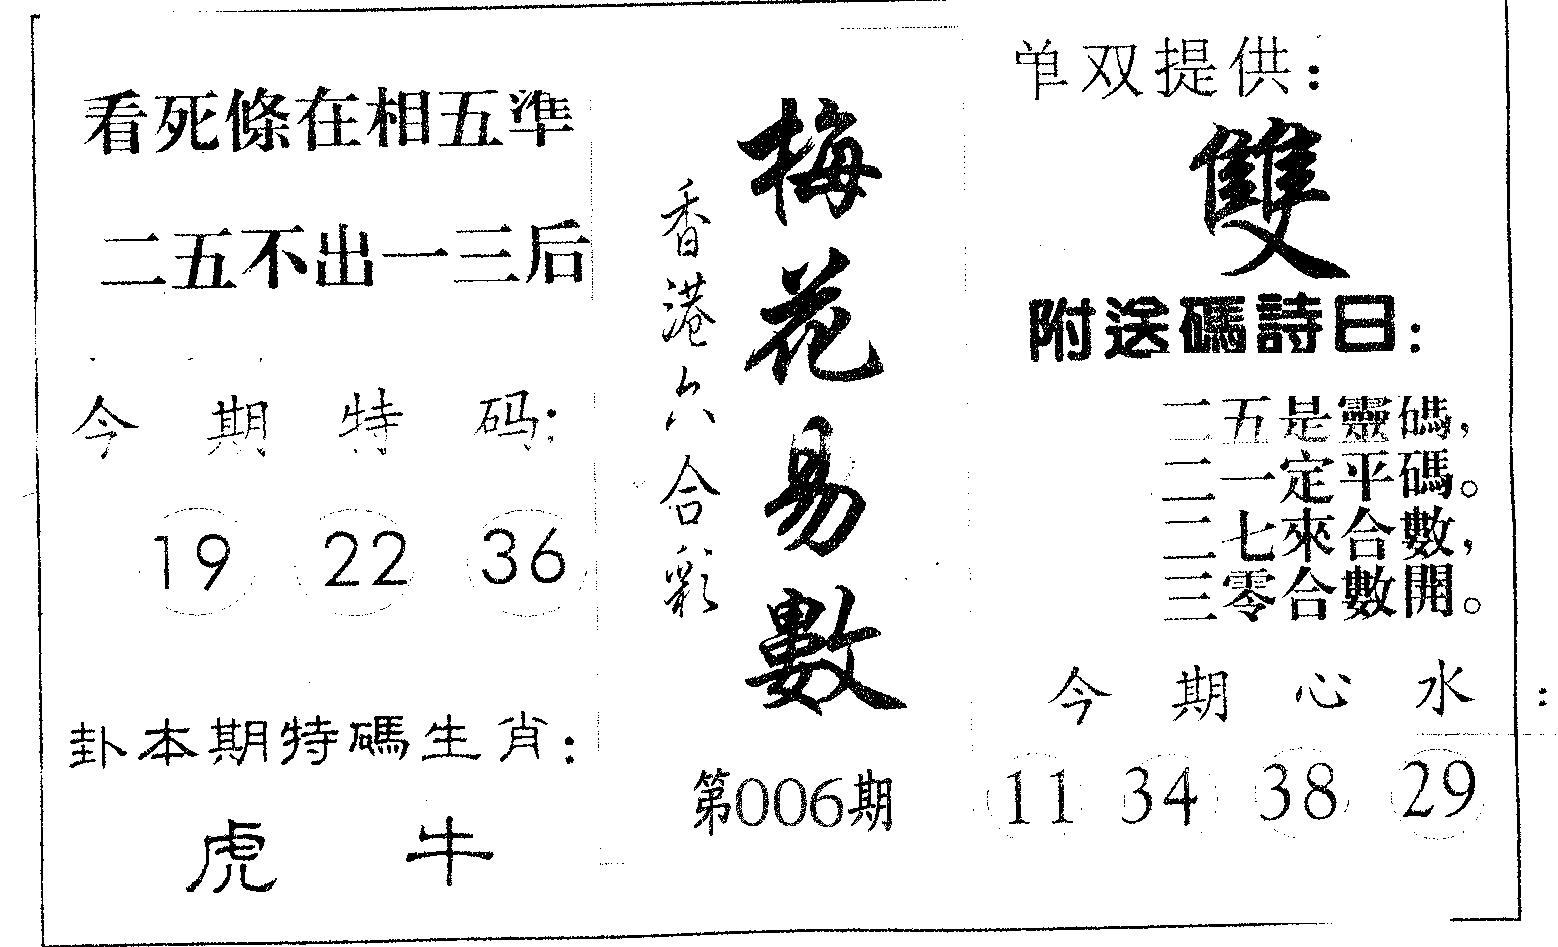 看死條在相五準
二五不出一三后
今期特码:
19 22 36
卦本期特碼生肖:
虎 牛
梅花易數
香港六合彩
第006期
单双提供:
雙
附送碼詩曰:
二五是靈碼,
二一定平碼。
二七來合數,
三零合數開。
今期心水:
11 34 38 29